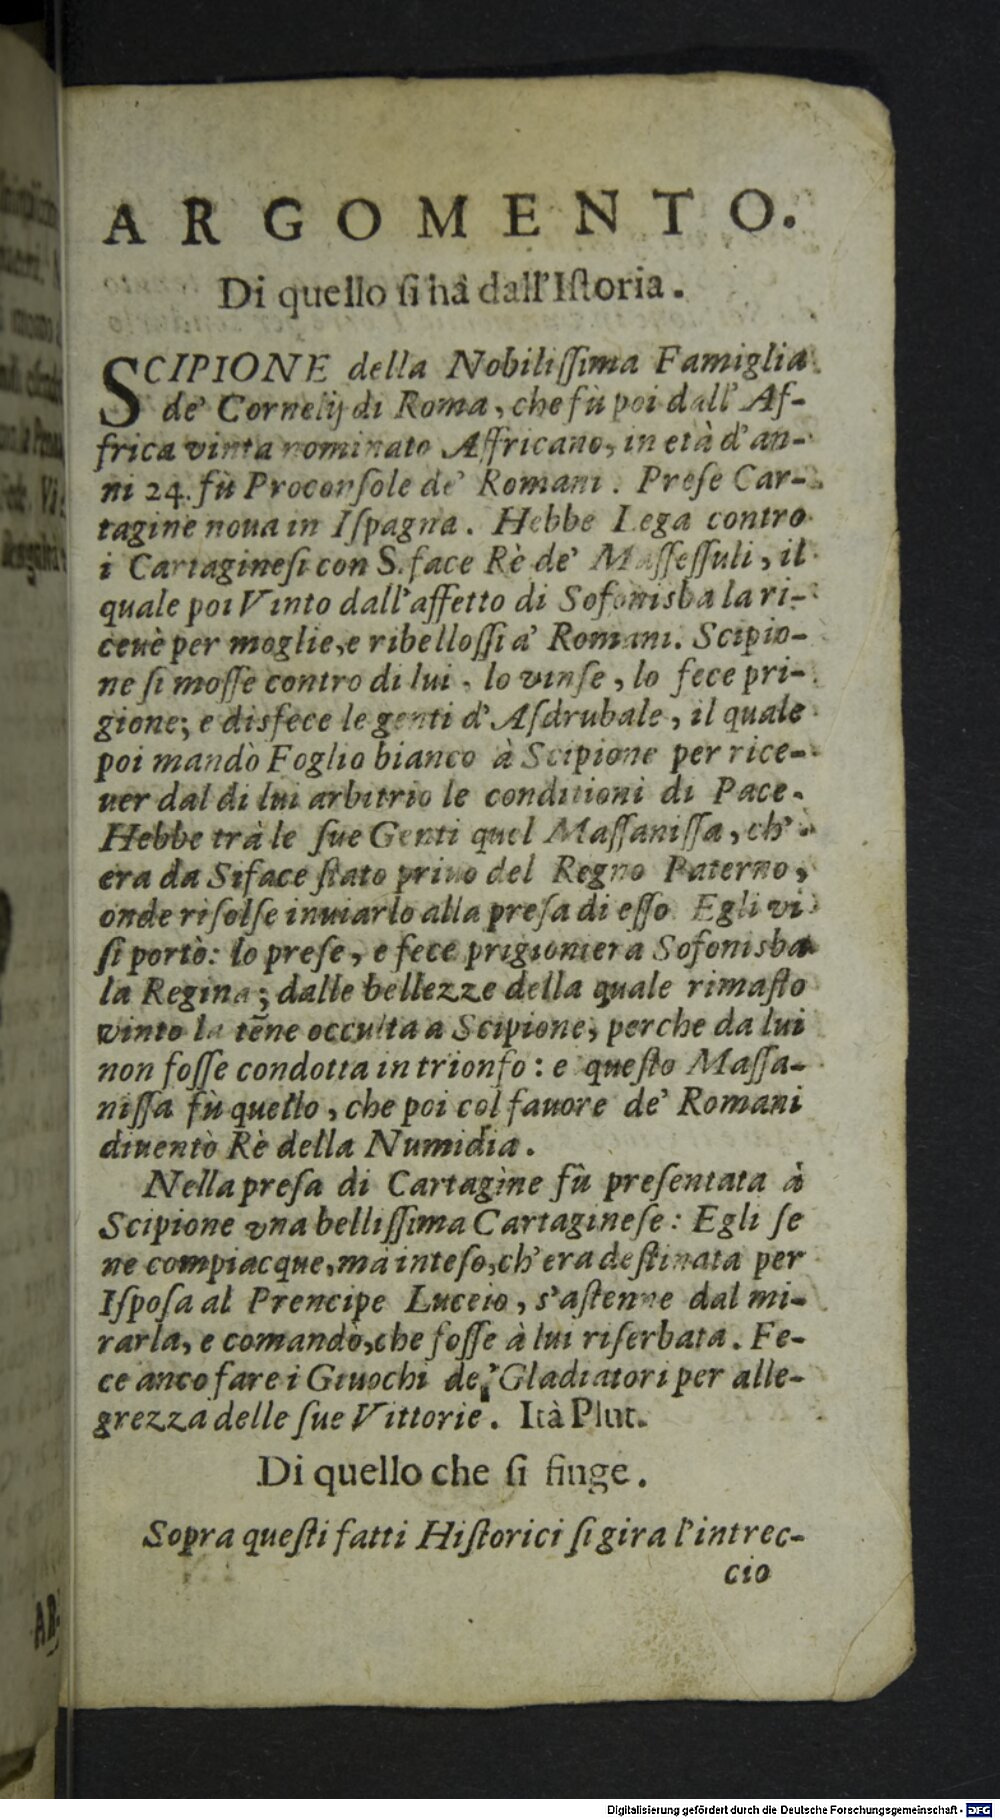 ARGOMENTO.
Di quello si hà dall'Istoria.
SCIPIONE della Nobilissima Famiglia
de' Cornelij di Roma, che fù poi dall' Af-
frica vinta nominato Affricano, in età d'an-
ni 24. fù Proconsole de' Romani. Prese Car-
tagine noua in Ispagna. Hebbe Lega contro
i Cartaginesi con S.face Rè de' Massessuli, il
quale poi Vinto dall'affetto di Sofonisba la ri-
ceuè per moglie, e ribellossi a' Romani. Scipio-
ne si mosse contro di lui, lo vinse, lo fece pri-
gione; e disfece le genti d'Asdrubale, il quale
poi mandò Foglio bianco à Scipione per rice-
uer dal di lui arbitrio le conditioni di Pace.
Hebbe trà le sue Genti quel Massanissa, ch'
era da Siface stato priuo del Regno Paterno,
onde risolse inuiarlo alla presa di esso. Egli vi
si portò: lo prese, e fece prigioniera Sofonisba
la Regina; dalle bellezze della quale rimasto
vinto la tēne occulta a Scipione, perche da lui
non fosse condotta in trionfo: e questo Massa-
nissa fù quello, che poi col fauore de' Romani
diuentò Rè della Numidia.
Nella presa di Cartagine fù presentata à
Scipione vna bellissima Cartaginese: Egli se
ne compiacque, mà inteso, ch'era destinata per
Isposa al Prencipe Luceio, s'astenne dal mi-
rarla, e comandò, che fosse à lui riserbata. Fe-
ce anco fare i Giuochi de' Gladiatori per alle-
grezza delle sue Vittorie. Ità Plut.
Di quello che si finge.
Sopra questi fatti Historici si gira l'intrec-
cio
AR-
Digitalisierung gefördert durch die Deutsche Forschungsgemeinschaft - DFG